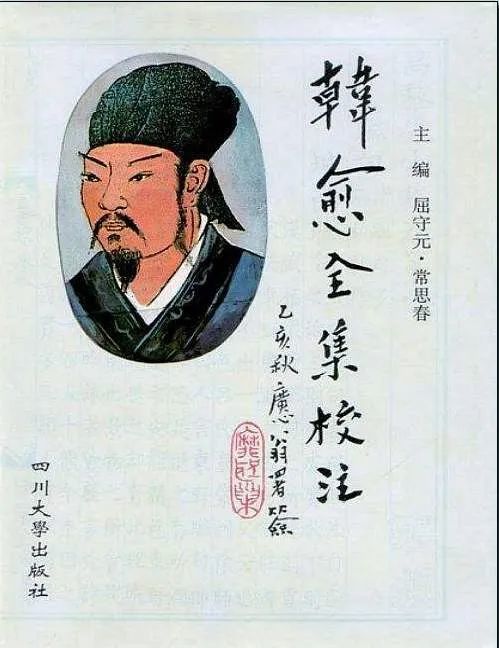 主编 屈守元·常思春
韓愈全集校注
乙亥秋 翁署簽
四川大學出版社